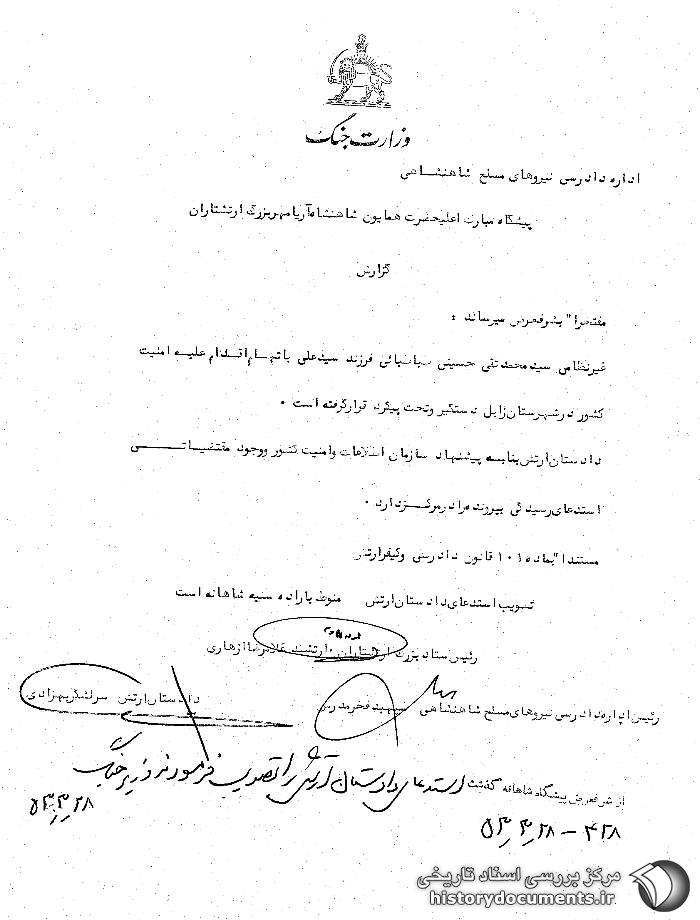 وزارت جنگ
اداره دادرسی نیروهای مسلح شاهنشاهی
پیشگاه مبارک اعلیحضرت همایون شاهنشاه آریامهر بزرگ ارتشتاران
گزارش
مفتخرا" بشرفعرض میرساند :
غیرنظامی سید محمد تقی حسینی طباطبائی فرزند سیدعلی باتهام اقدام علیه امنیت
کشور در شهرستان زابل دستگیر و تحت پیگرد قرارگرفته است .
دادستان ارتش بنابه پیشنهاد سازمان اطلاعات و امنیت کشور و وجود مقتضیاتی
استدعای رسیدگی بپرونده را در مرکز دارد .
مستندا" بماده ۱۰۱ قانون دادرسی و کیفر ارتش
تصویب استدعای دادستان ارتش منوط باراده سنیه شاهانه است
رئیس ستاد بزرگ ارتشتاران . ارتشبد غلامرضا ازهاری
رئیس اداره دادرسی نیروهای مسلح شاهنشاهی سپهبد فخر مدرس
دادستان ارتش سرلشگر بهزادی
از شرفعرض پیشگاه شاهانه گذشت استدعای دادستان ارتش را تصویب فرمودند وزیر جنگ
۵۳،۴،۲۸
۴۲۸ – ۵۳،۴،۲۸
مرکز بررسی اسناد تاریخی
historydocuments.ir